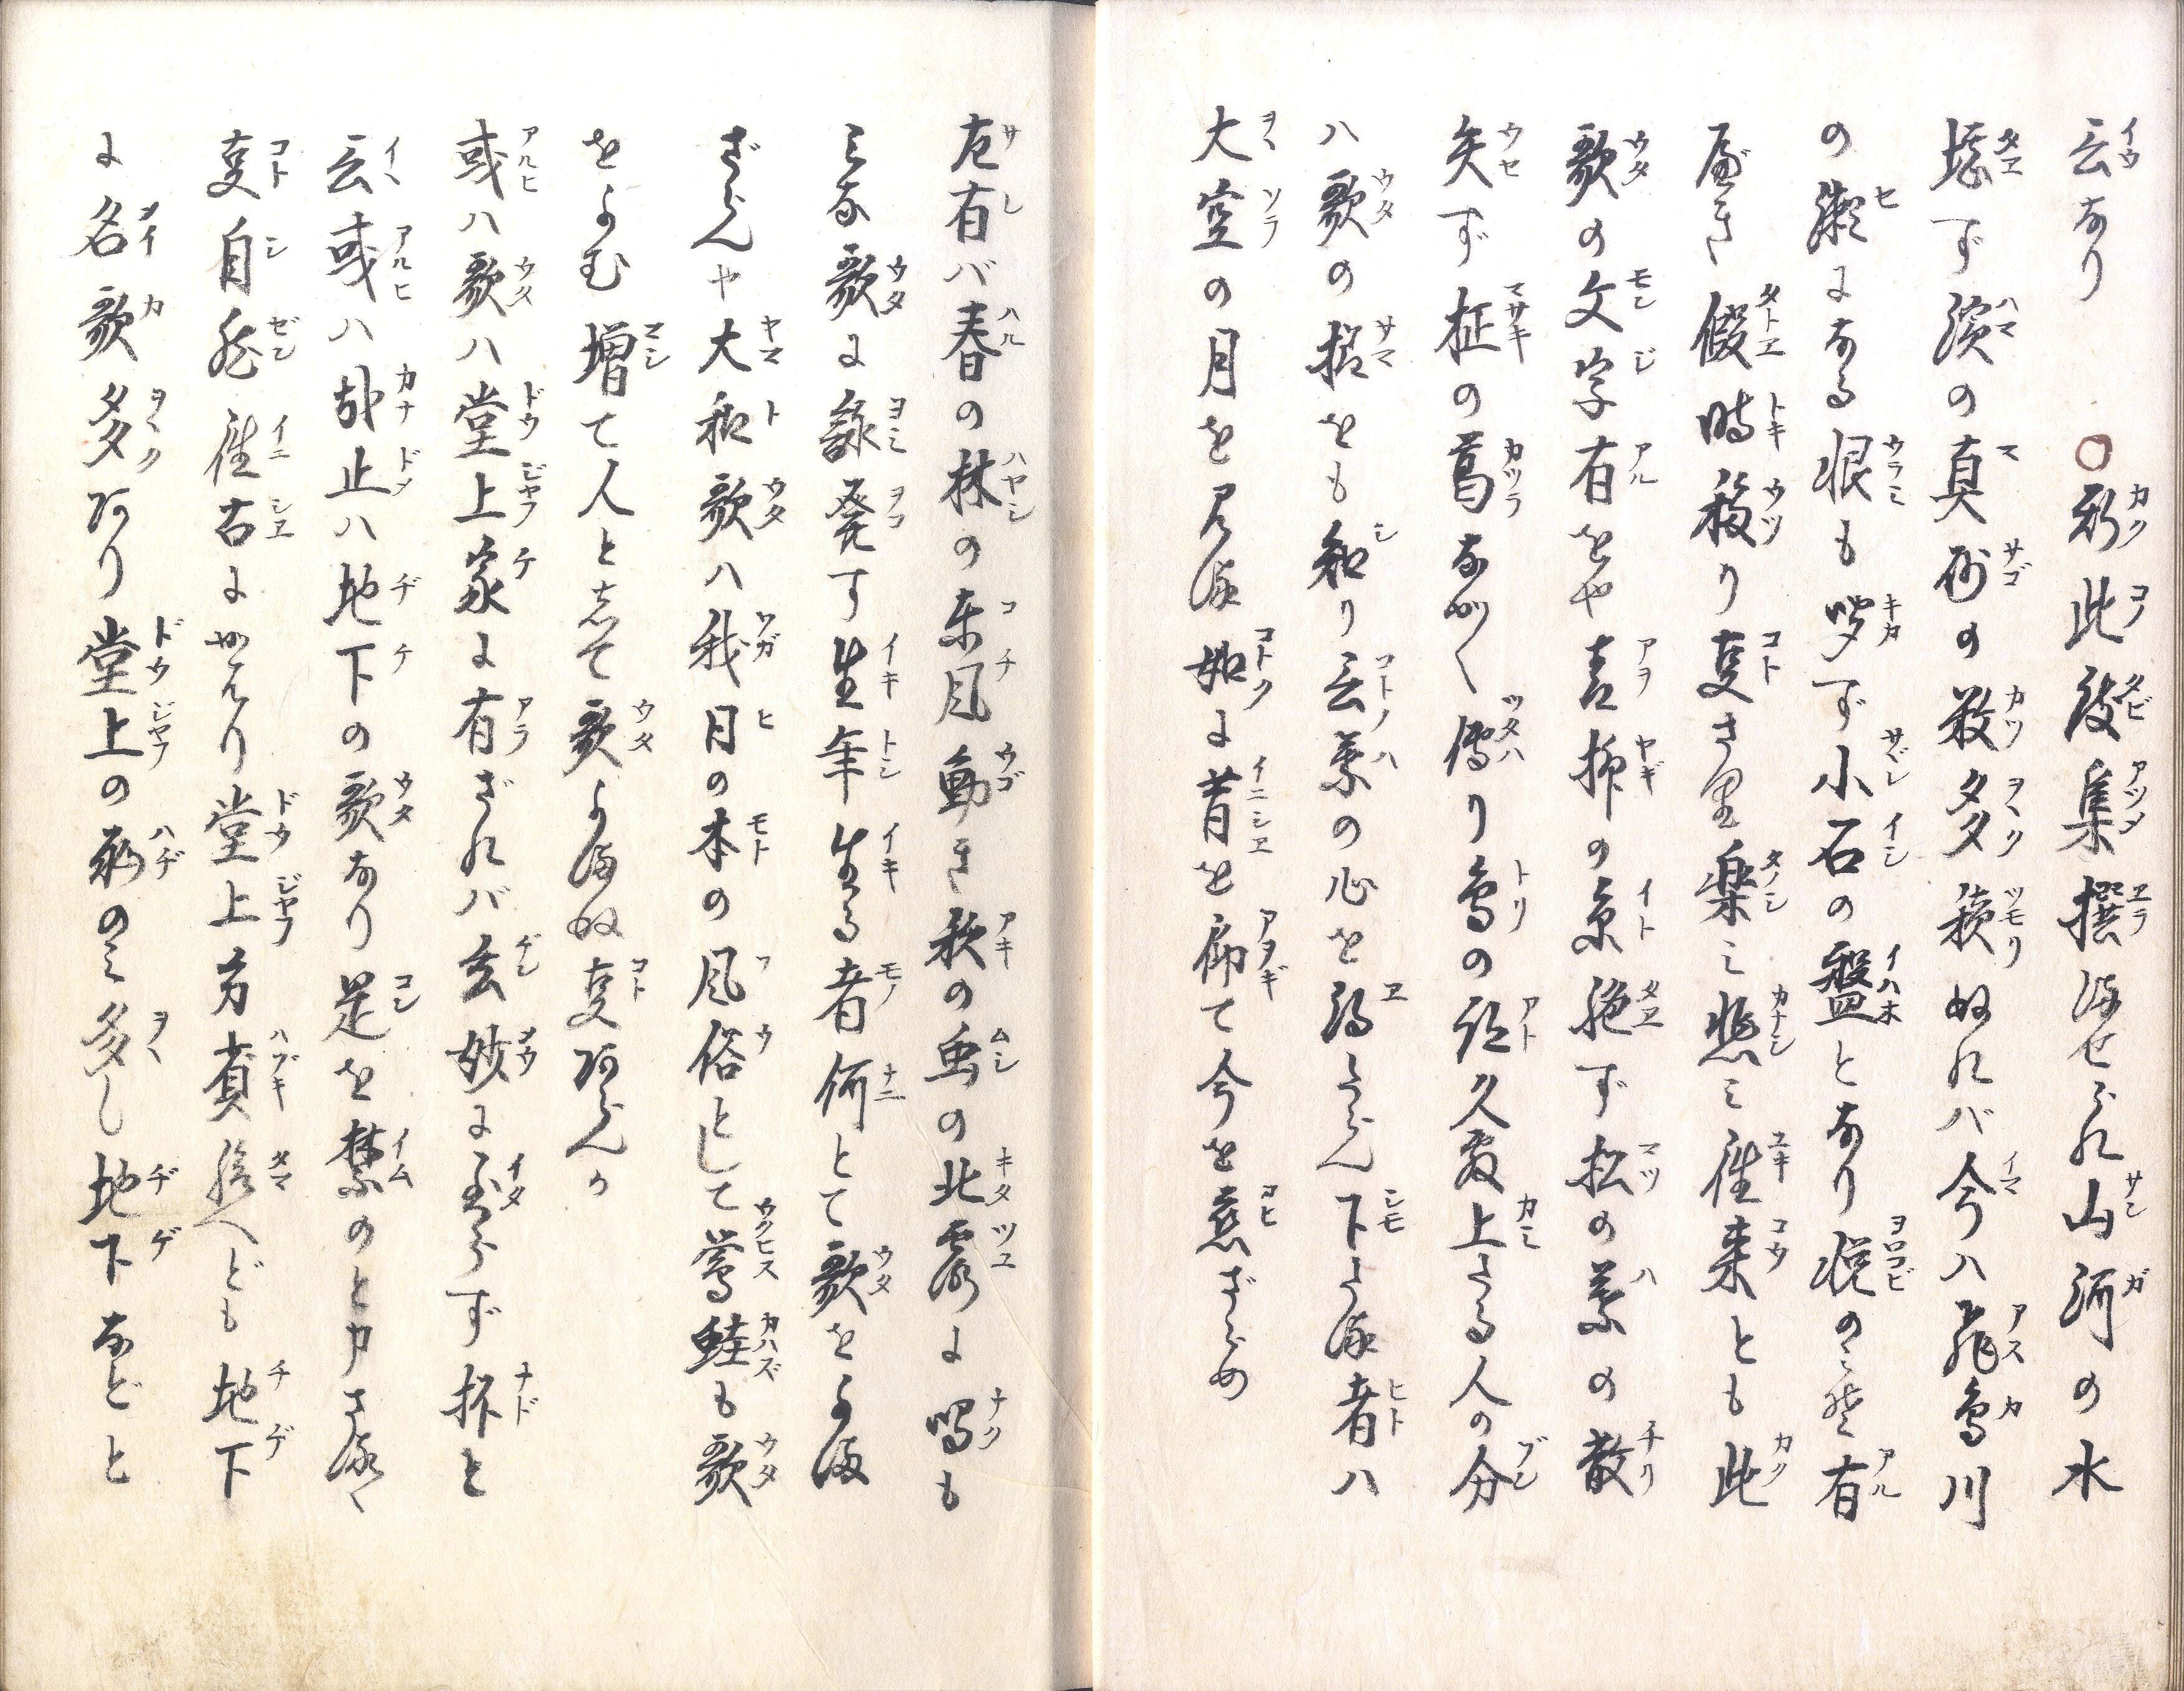 云なり　○刕此度集撰ませられ山河の水
堪ず濱の真砂の数多積ぬれバ今ハ飛鳥川
の瀬になる恨も聞ず小石の盤となり悦のミぞ有
べき假時移り事さり楽ミ悲ミ往来とも此
歌の文字有をや青柳の糸絶ず松の葉の散
失ず柾の葛ながく傳り鳥の跡久敷上たる人の分
ハ歌の様をも知り言葉の心を得たらん下たる者ハ
大空の月を見る如に昔を仰て今を恋ざらめ
左有バ春の林の東風動き秋の虫の北露に鳴も
みな歌に詠発す生年生る者何とて歌をよま
ざらんや大和歌ハ我日の本の風俗として鶯蛙も歌
をよむ増て人と志て歌よまぬ事あらんか
或ハ歌ハ堂上家に有ざれバ玄妙に至らず抔と
云或ハ哉止ハ地下の歌なり是を禁のと申さるゝ
事自然往古にかえり堂上方責給へども地下
に名歌多あり堂上の恥のミ多し地下などと